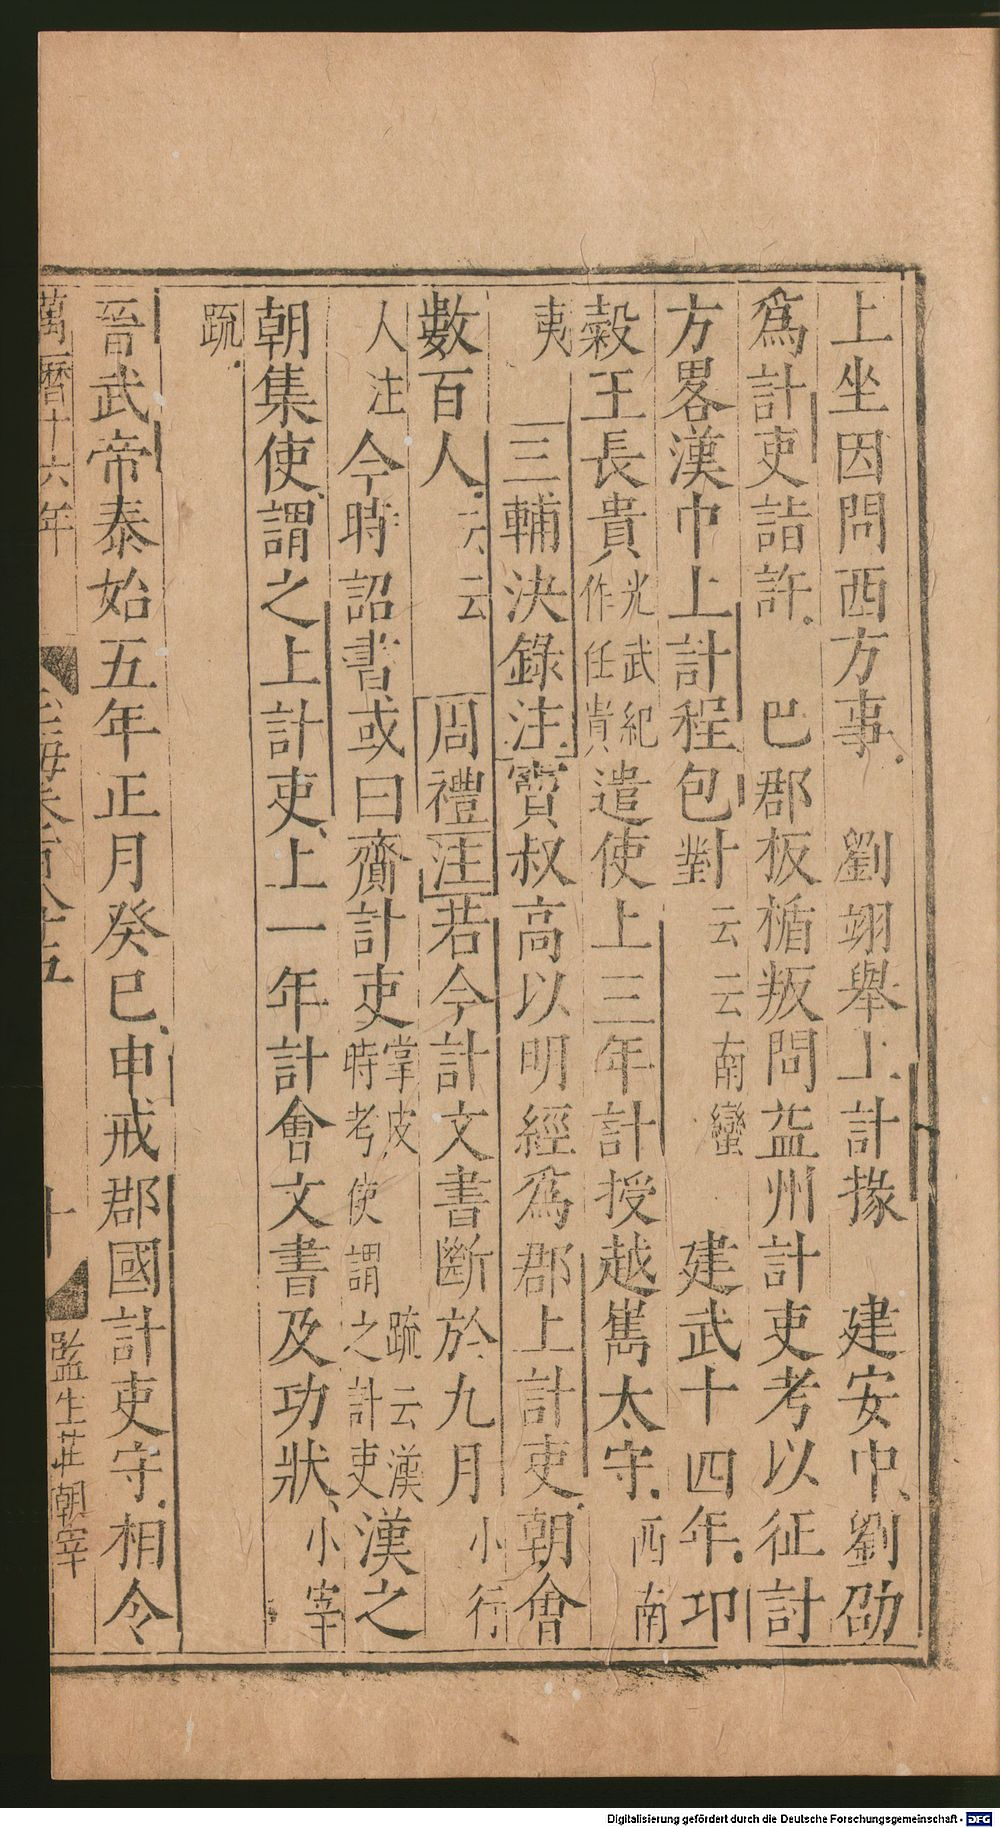 上坐因問西方事　劉翊舉上計掾　建安中劉劭
爲計吏詣許　巴郡板楯叛問益州計吏考以征討
方畧漢中上計程包對云云南蠻　建武十四年卭
糓王長貴光武紀作任貴遣使上三年計授越嶲太守西南
夷　三輔決錄注竇叔高以明經爲郡上計吏朝會
數百人云云　周禮注若今計文書斷於九月小行
人注今時詔書或曰齎計吏掌皮疏云漢時考使謂之計吏漢之
朝集使謂之上計吏上一年計會文書及功狀小宰
疏
晉武帝泰始五年正月癸巳申戒郡國計吏守相令
萬曆十六年
玉海卷百八十五
十
監生莊朝宰
Digitalisierung gefördert durch die Deutsche Forschungsgemeinschaft - DFG